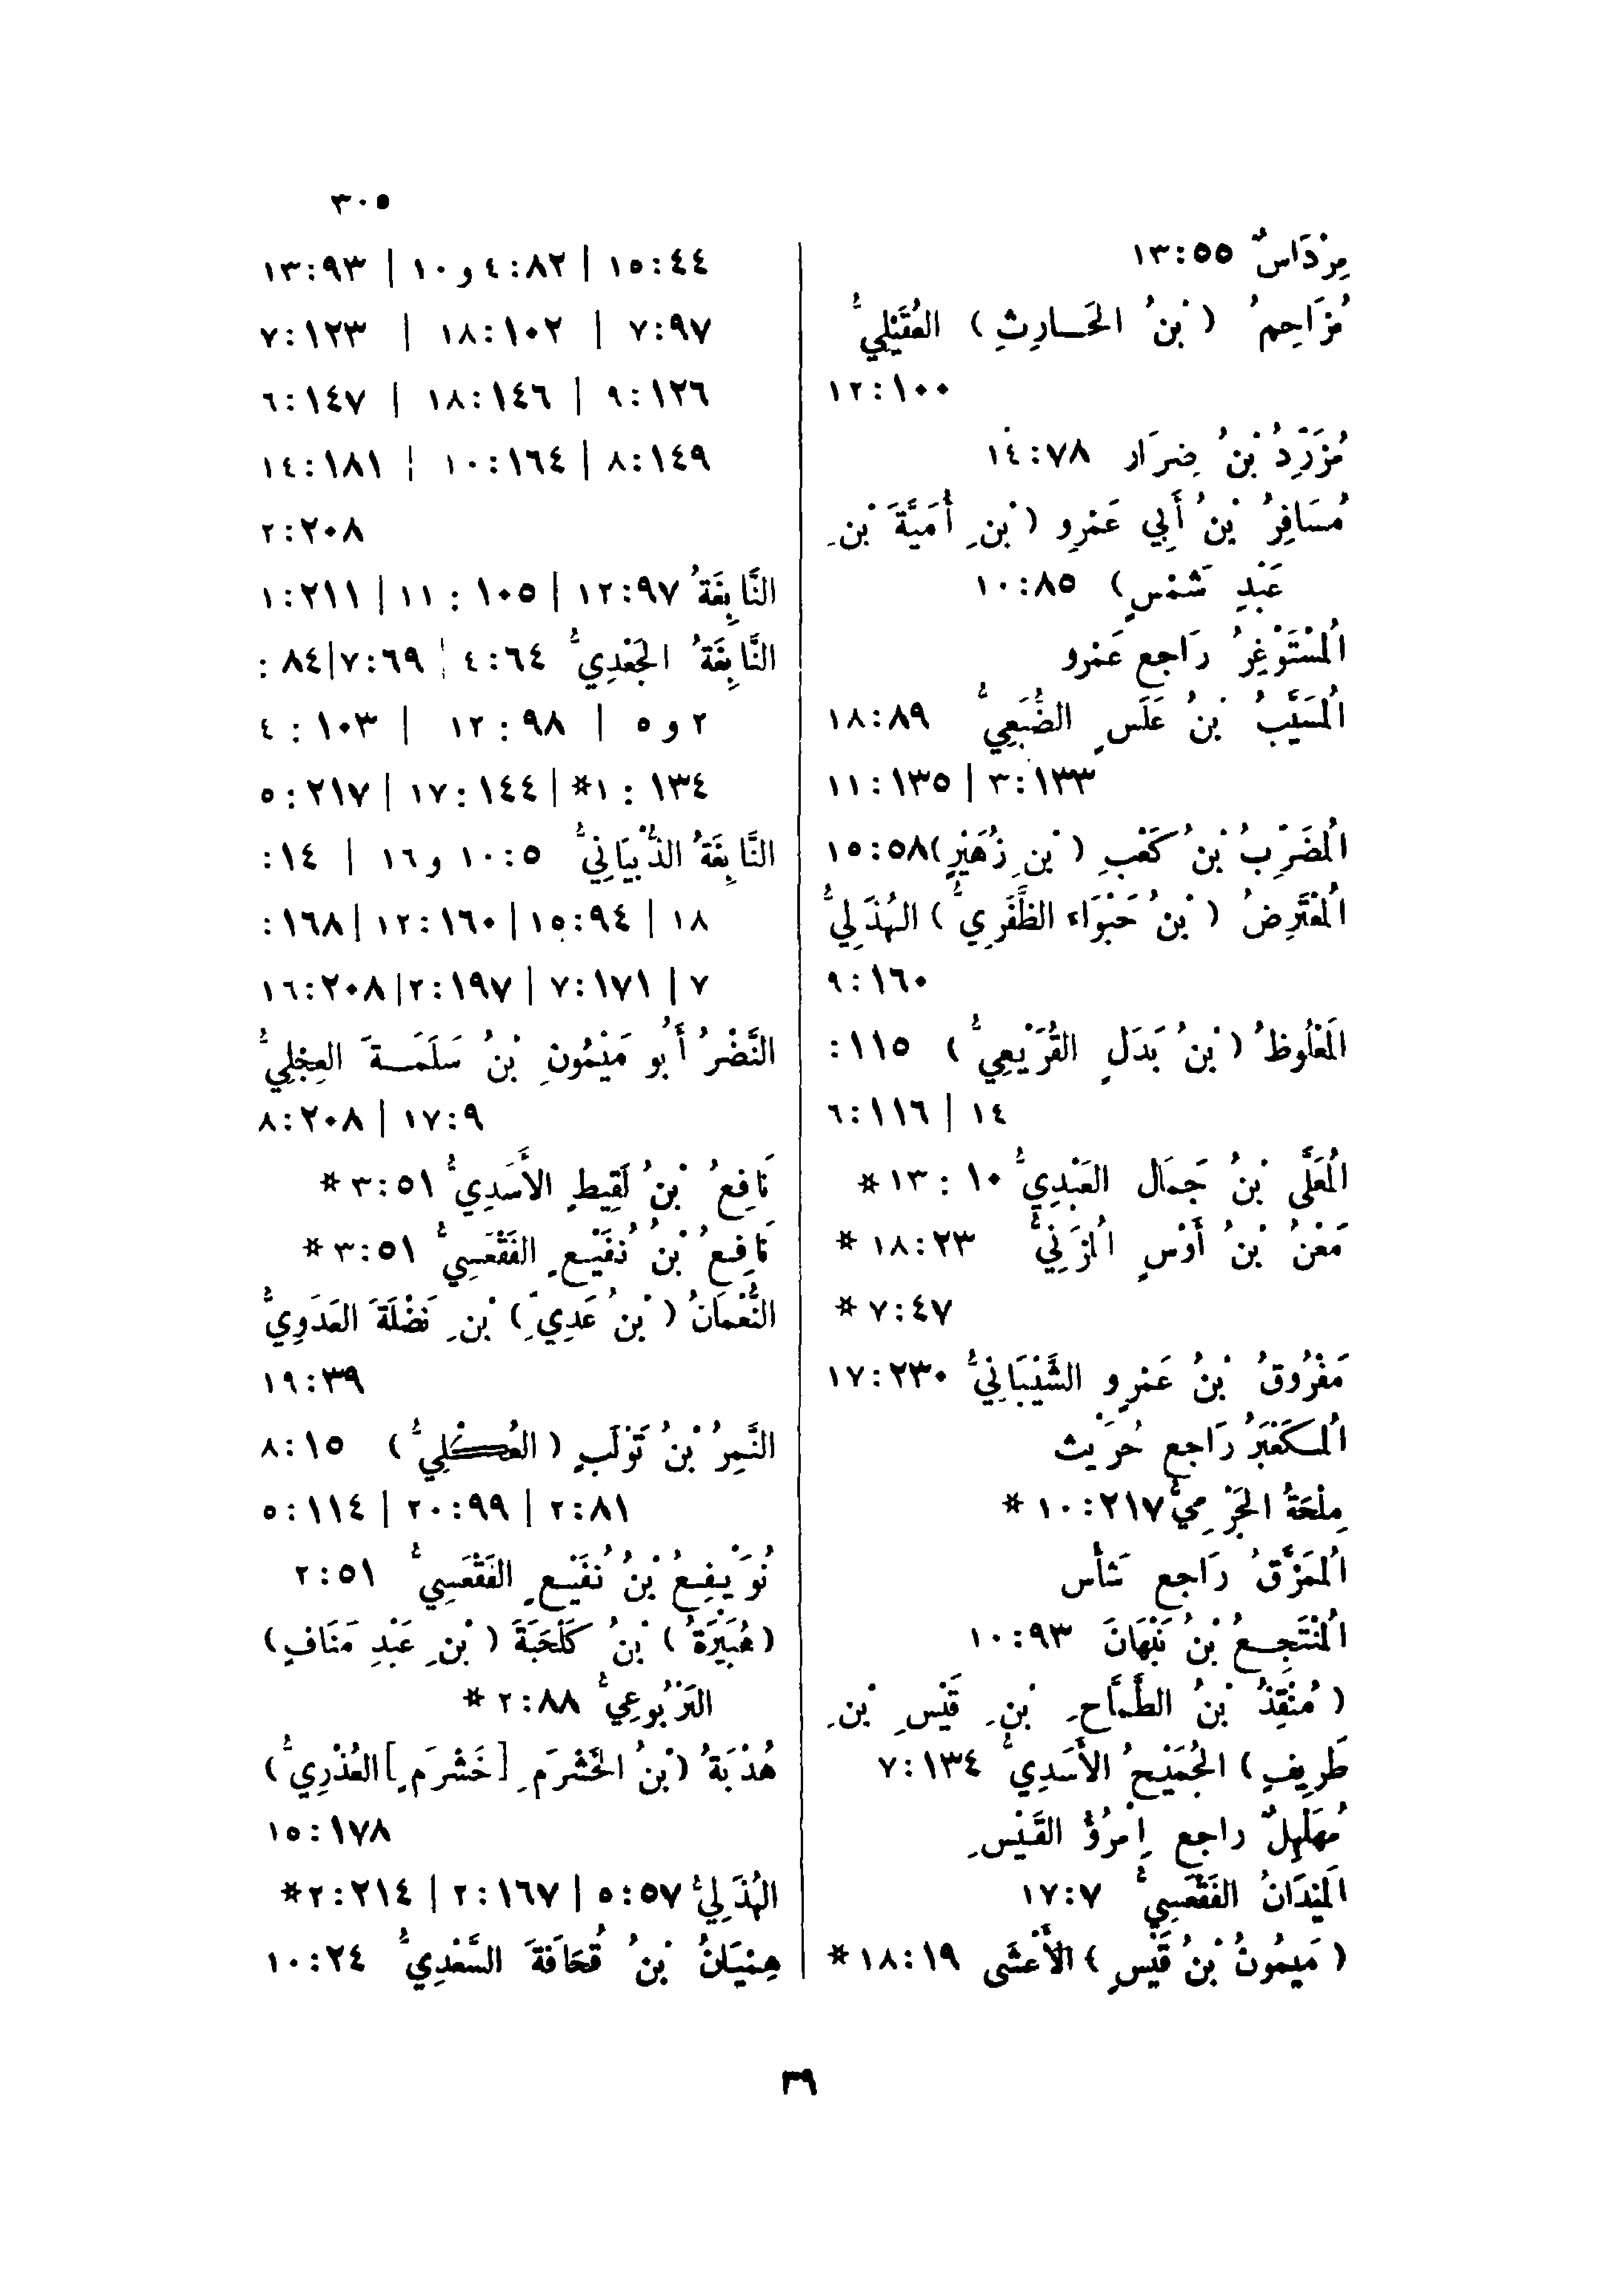 ٣٠٥
مِرْدَاسٌ ٥٥:١٣
مُزَاحِمُ (بْنُ الحَارِثِ) العُقَيْلِيُّ
١٠٠:١٢
مُزَرِّدُ بْنُ ضِرَار ٧٨:١٤
مُسَافِرُ بْنُ أَبِي عَمْرِو (بْنِ أُمَيَّةَ بْنِ
عَبْدِ شَمْسٍ) ٨٥:١٠
المُسْتَوْغِرُ رَاجع عَمْرو
المُسَيَّبُ بْنُ عَلَسٍ الضُّبَعِيُّ ٨٩:١٨
١٣٣:٣ | ١٣٥:١١
المُضَرِّبُ بْنُ كَعْبِ (بْنِ زُهَيْرٍ) ٥٨:١٥
المُعْتَرِضُ (بْنُ حَبْوَاء الظَّفَرِيُّ) الهُذَلِيُّ
١٦٠:٩
المَعْلُوطُ (بْنُ بَدَلٍ القُرَيْعِيُّ) ١١٥:
١٤ | ١١٦:٦
المُعَلَّى بْنُ جَمَال العَبْدِيُّ ١٠:١٣*
مَعْنُ بْنُ أَوْسٍ المُزَنِيُّ ٢٣:١٨*
٤٧:٧*
مَفْرُوقُ بْنُ عَمْرٍو الشَّيْبَانِيُّ ٢٣٠:١٧
المُكَعْبَرُ رَاجع حُرَيْث
مِلْحَةُ الجَرْمِيُّ ٢١٧:١٠*
المُمَزَّقُ رَاجع شَأْس
المُنْتَجِعُ بْنُ نَبْهَانَ ٩٣:١٠
(مُنْقِذُ بْنُ الطَّمَّاحِ بْنِ قَيْسِ بْنِ
طَرِيفٍ) الجُمَيْحُ الأَسَدِيُّ ١٣٤:٧
مُهَلْهِلٌ راجع إِمْرُؤُ القَيْسِ
المَيْدَانُ الفَقْعَسِيُّ ٧:١٧
(مَيمُونُ بْنُ قَيْسٍ) الأَعْشَى ١٩:١٨*
٤٤:١٥ | ٨٢:٤ و ١٠ | ٩٣:١٣
٩٧:٧ | ١٠٢:١٨ | ١٢٣:٧
١٢٦:٩ | ١٤٦:١٨ | ١٤٧:٦
١٤٩:٨ | ١٦٤:١٠ | ١٨١:١٤
٢٠٨:٢
النَّابِغَةُ ٩٧:١٢ | ١٠٥:١١ | ٢١١:١
النَّابِغَةُ الجَعْدِيُّ ٦٤:٤ | ٦٩:٧ | ٨٤:
٢ و ٥ | ٩٨:١٢ | ١٠٣:٤
١٣٤:١* | ١٤٤:١٧ | ٢١٧:٥
النَّابِغَةُ الذُّبْيَانِيُّ ٥:١٠ و ١٦ | ١٤:
١٨ | ٩٤:١٥ | ١٦٠:١٢ | ١٦٨:
٧ | ١٧١:٧ | ١٩٧:٢ | ٢٠٨:١٦
النَّضْرُ أَبُو مَيْمُونِ بْنُ سَلَمَةَ العِجْلِيُّ
٩:١٧ | ٢٠٨:٨
نَافِعُ بْنُ لَقِيطٍ الأَسَدِيُّ ٥١:٣*
نَافِعُ بْنُ نُفَيْعٍ الفَقْعَسِيُّ ٥١:٣*
النُّعْمَانُ (بْنُ عَدِيِّ) بْنِ نَضْلَةَ العَدَوِيُّ
٣٩:١٩
النَّمِرُ بْنُ تَوْلَبٍ (العُكْلِيُّ) ١٥:٨
٨١:٢ | ٩٩:٢٠ | ١١٤:٥
نُوَيْفِعُ بْنُ نُفَيْعٍ الفَقْعَسِيُّ ٥١:٢
(هُبَيْرَةُ) بْنُ كَلْحَبَةَ (بْنِ عَبْدِ مَنَافٍ)
اليَرْبُوعِيُّ ٨٨:٢*
هُدْبَةُ (بْنُ الخَشْرَمِ [خَشْرَمٍ] العُذْرِيُّ)
١٧٨:١٥
الهُذَلِيُّ ٥٧:٥ | ١٦٧:٢ | ٢١٤:٢*
هِمْيَانُ بْنُ قُحَافَةَ السَّعْدِيُّ ٢٤:١٠
٣٩